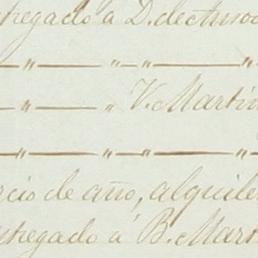 tregado a D.
— " — " — " — "
— " — " V. Martin
— " — " — " — "
rcio de año, alquile
ntregado á B. Mart